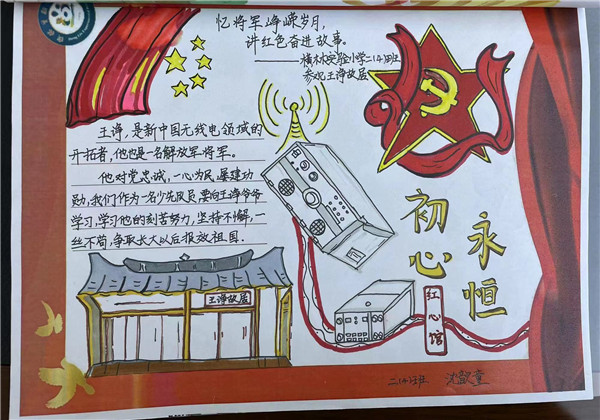 忆将军峥嵘岁月，
讲红色奋进故事。
——横林实验小学二(4)班
参观王诤故居
王诤，是新中国无线电领域的
开拓者，他也是一名解放军将军。
他对党忠诚，一心为民，屡建功
勋，我们作为一名少先队员，要向王诤爷爷
学习，学习他的刻苦努力，坚持不懈，一
丝不苟，争取长大以后报效祖国。
初心
永恒
王诤故居
红心馆
二(4)班